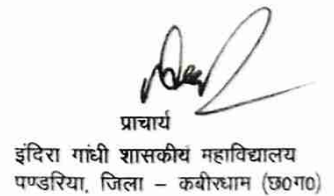 प्राचार्य
इंदिरा गांधी शासकीय महाविद्यालय
पण्डरिया, जिला – कबीरधाम (छ0ग0)